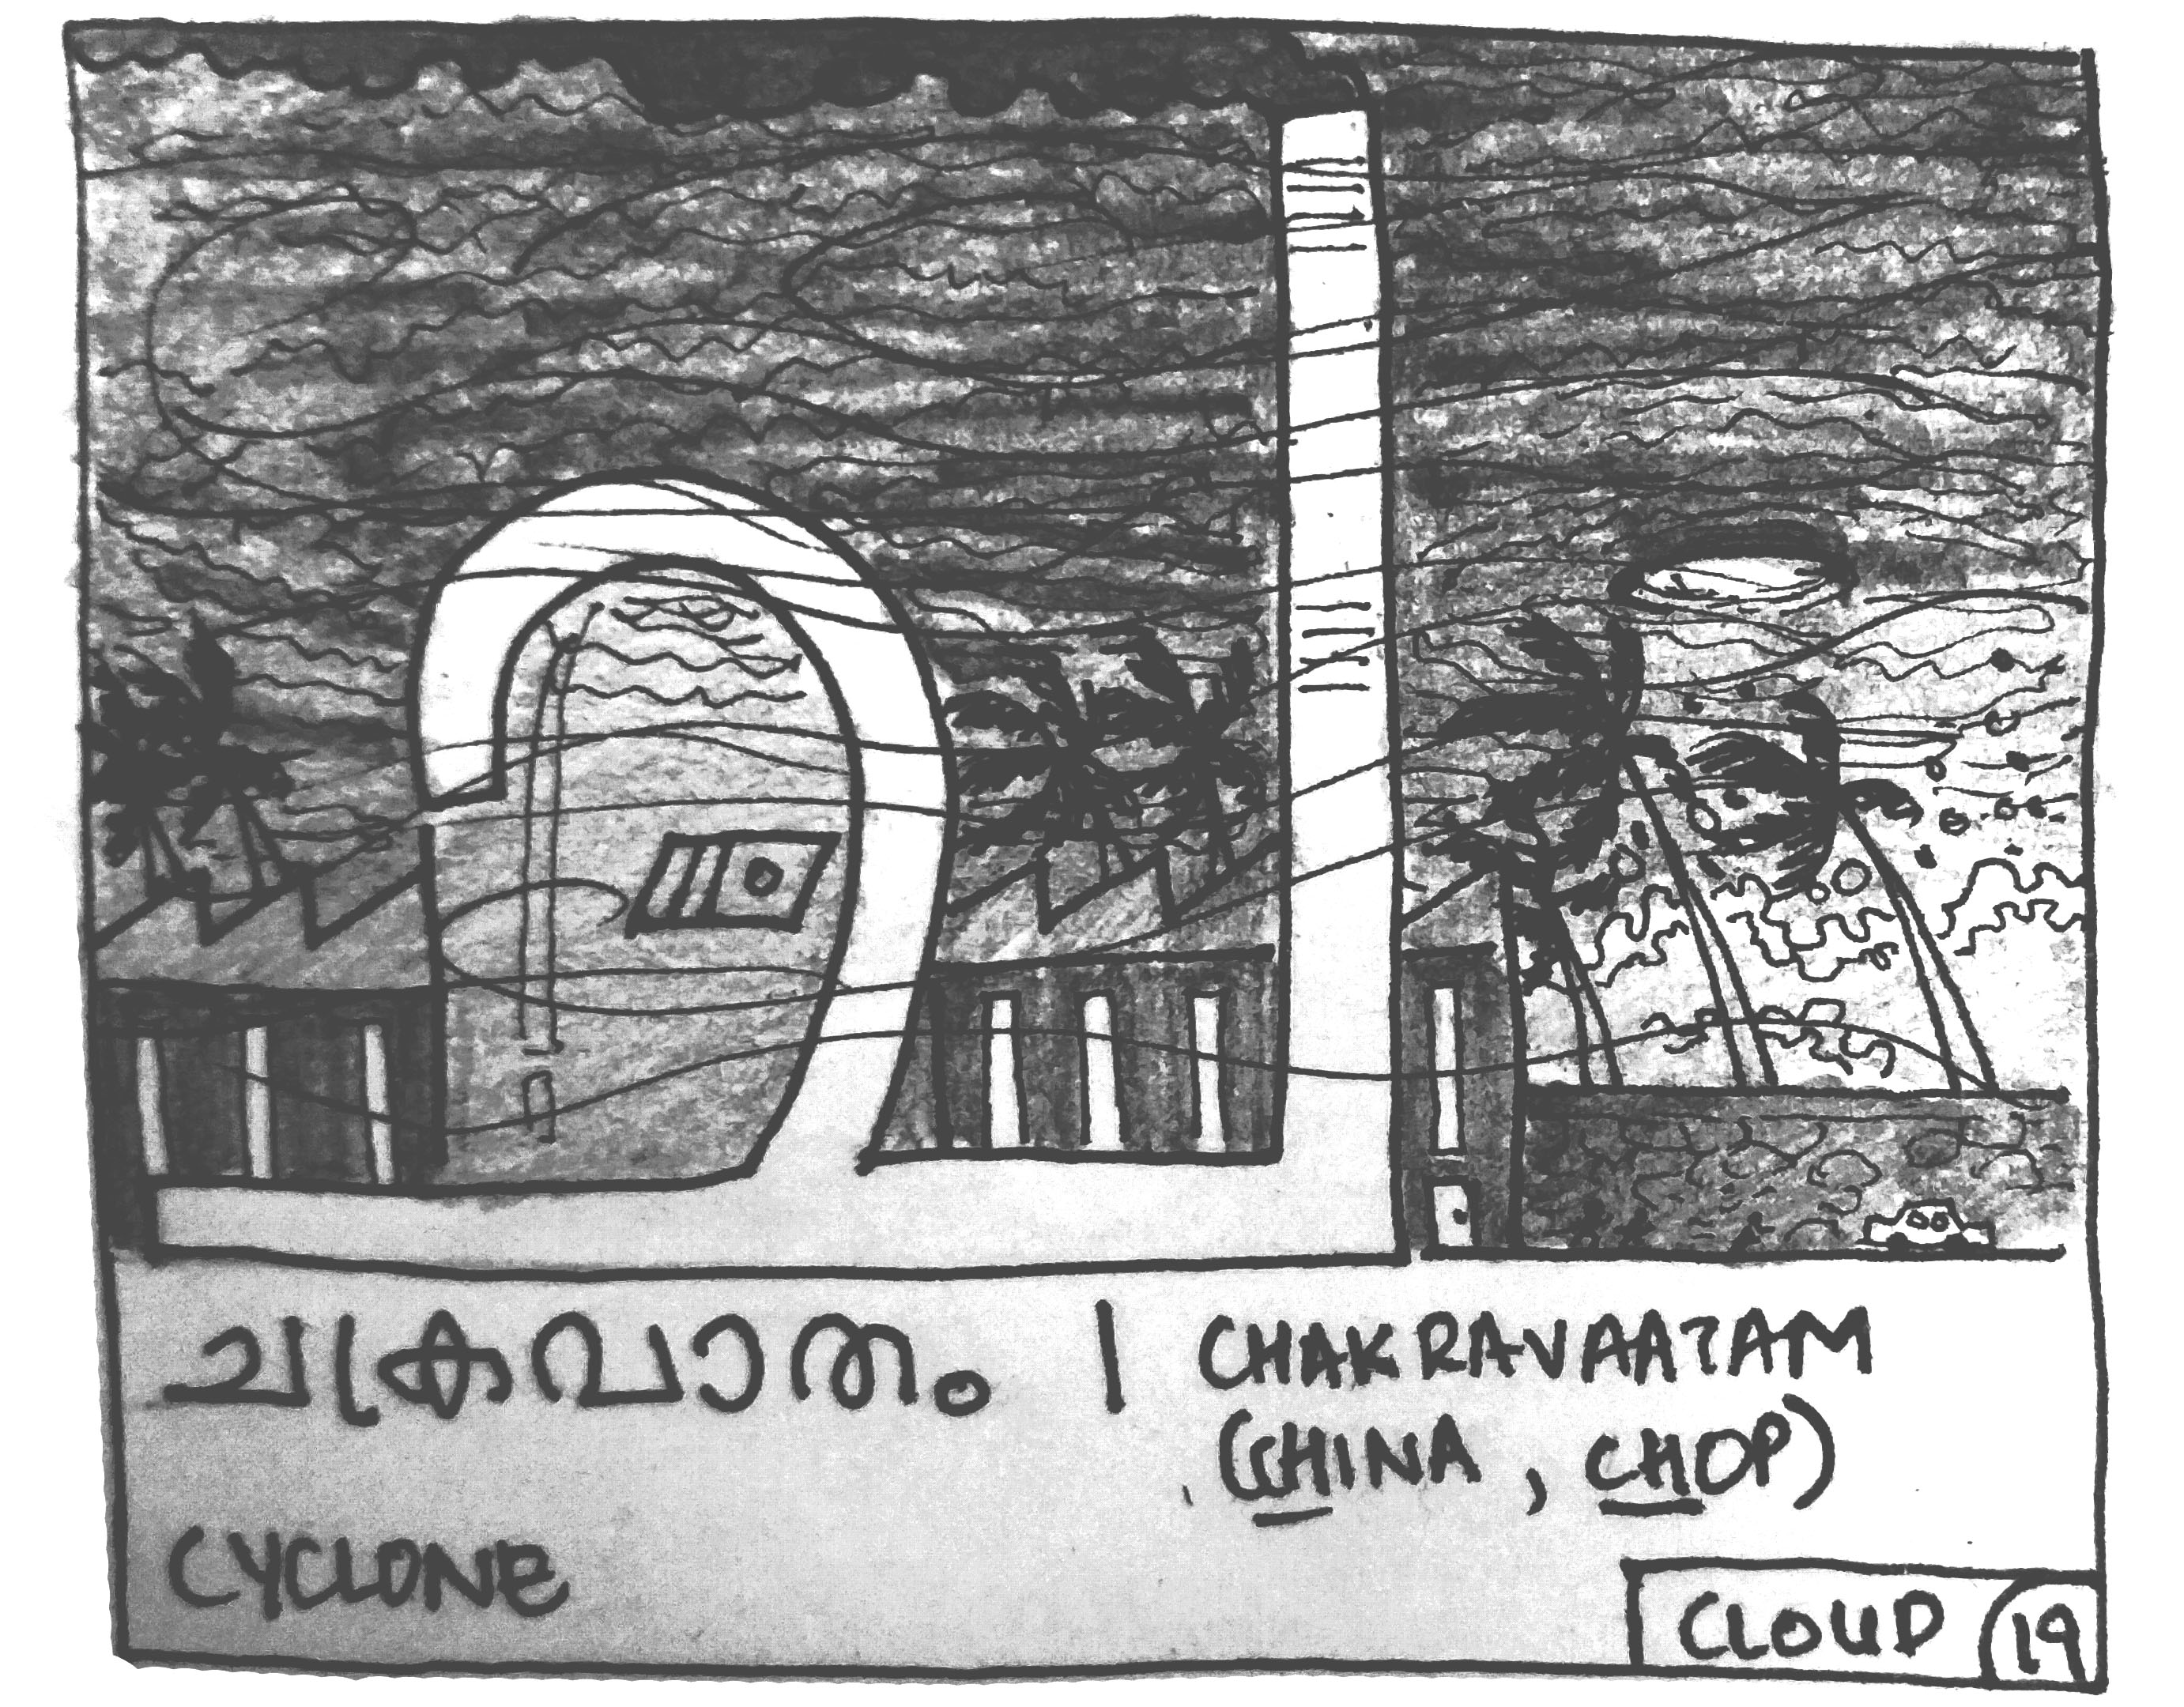 ച
ചക്രവാതം | CHAKRAVAATAM
(CHINA, CHOP)
CYCLONE
CLOUD 19